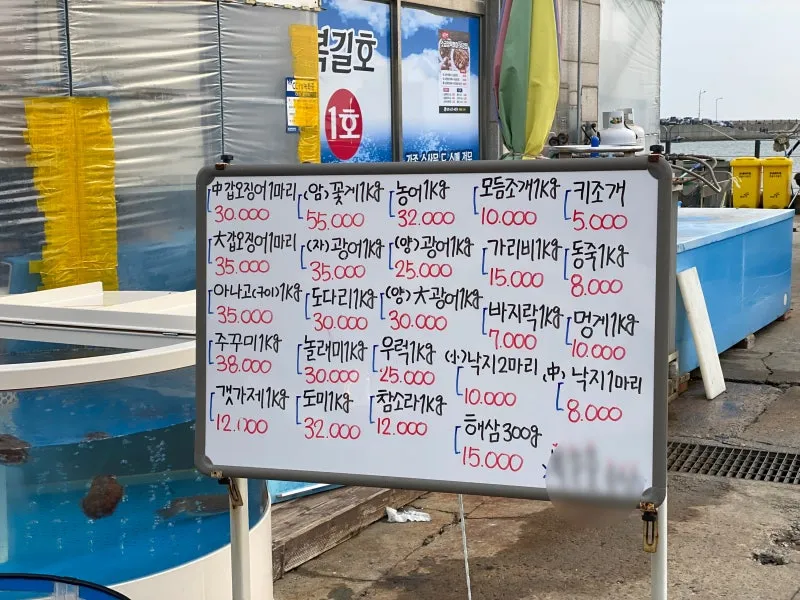 복길호
1호
中갑오징어1마리
30.000
(암)꽃게1kg
55.000
농어1kg
32.000
모듬조개1kg
10.000
키조개
5.000
大갑오징어1마리
35.000
(자)광어1kg
35.000
(양)광어1kg
25.000
가리비1kg
15.000
동죽1kg
8.000
아나고(구이)1kg
35.000
도다리1kg
30.000
(양)大광어1kg
30.000
바지락1kg
7.000
멍게1kg
10.000
주꾸미1kg
38.000
놀래미1kg
30.000
우럭1kg
25.000
(小)낙지2마리
10.000
(中)낙지1마리
8.000
갯가제1kg
12.000
도미1kg
32.000
참소라1kg
12.000
해삼300g
15.000